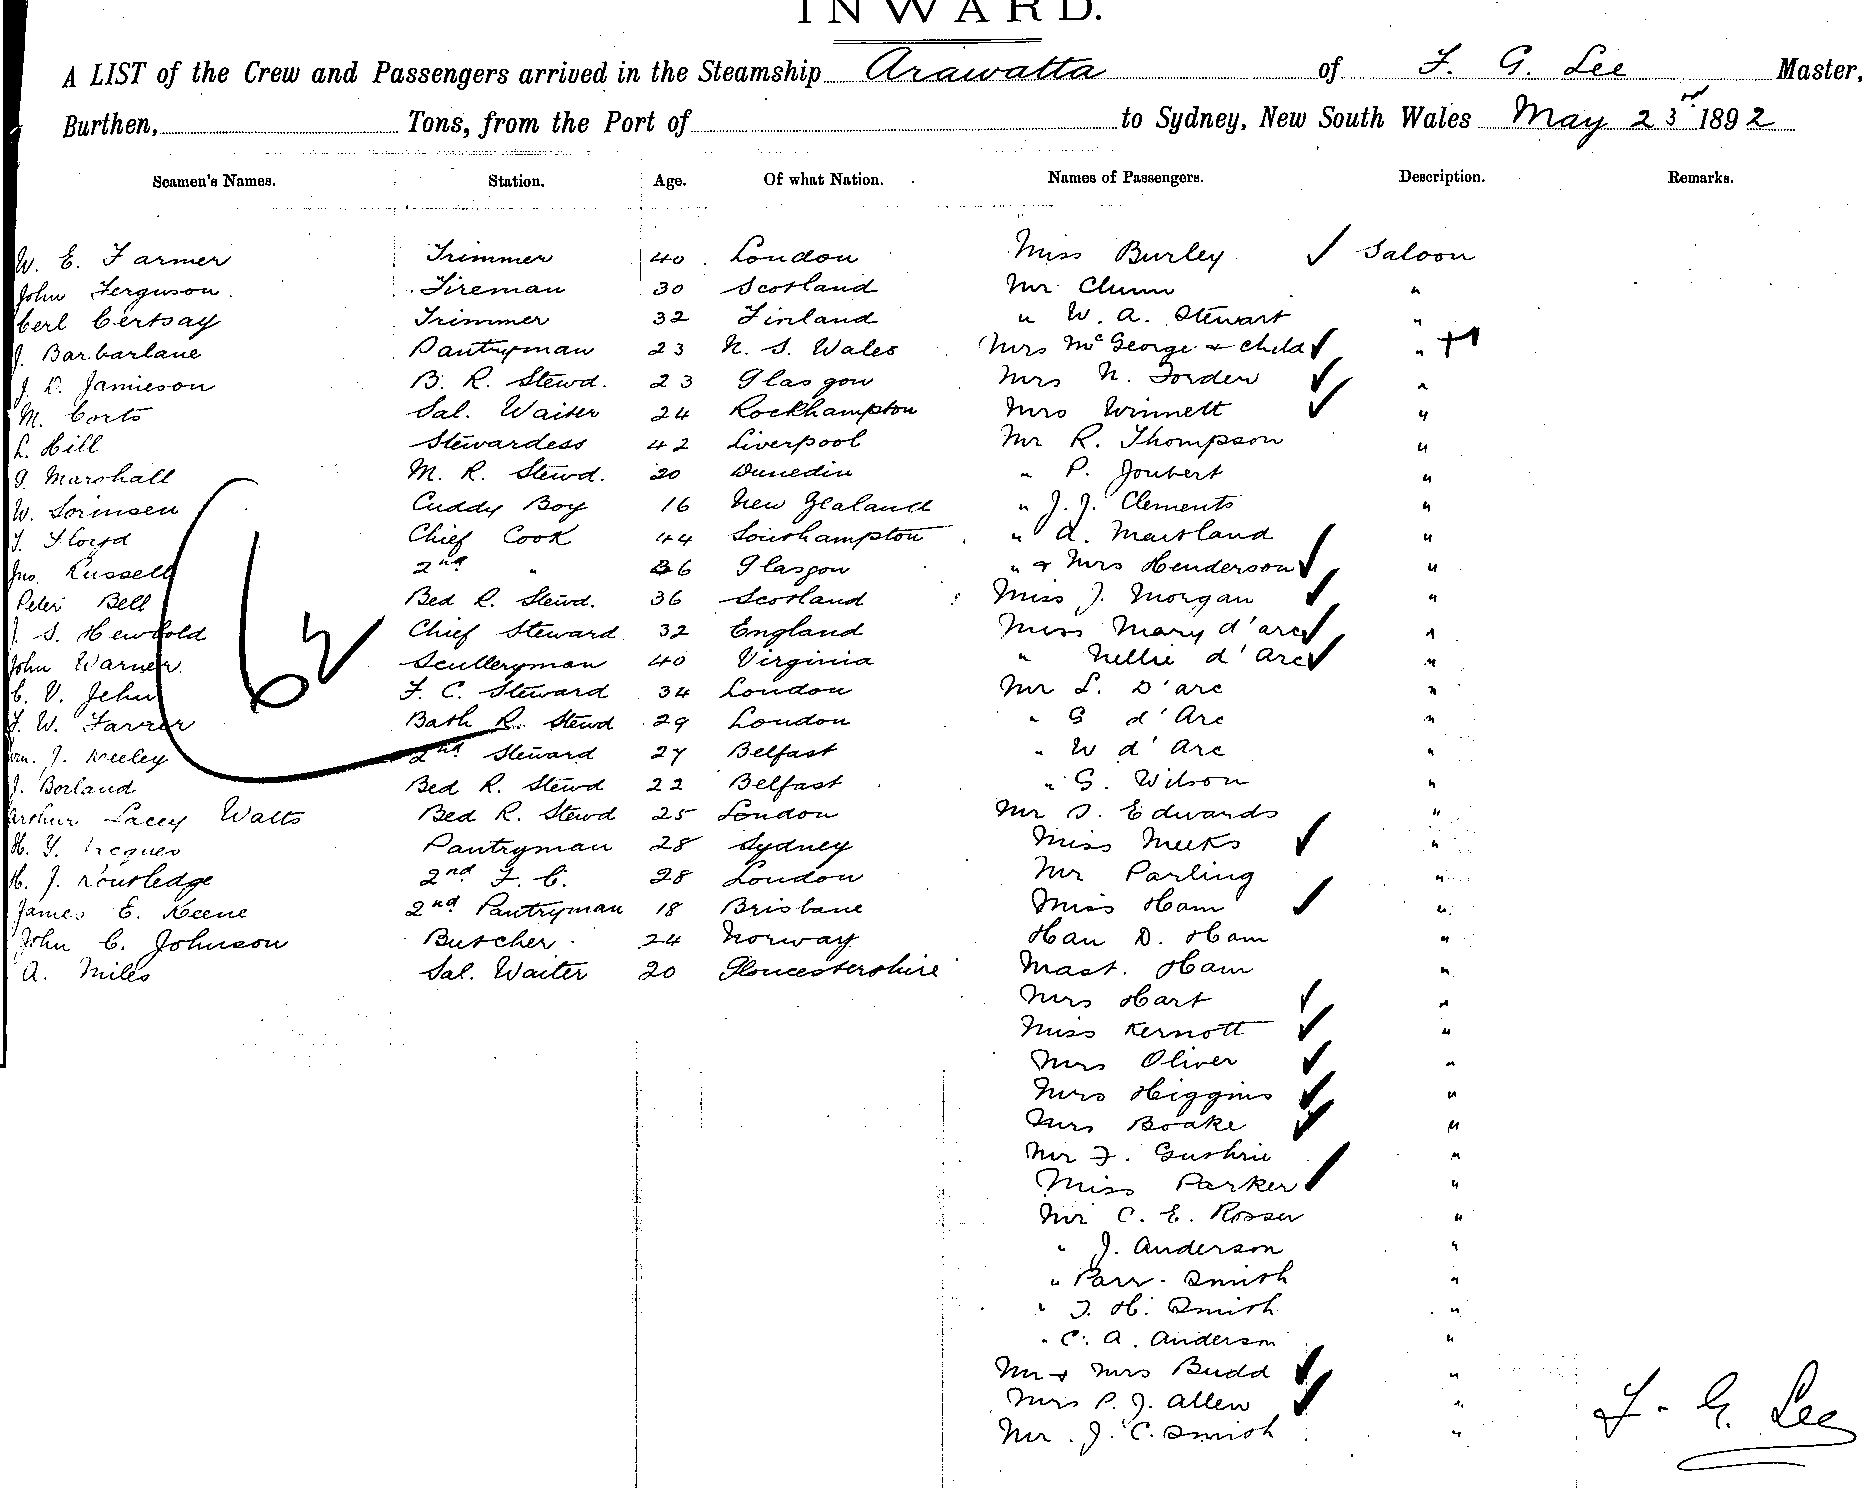 INWARD.
A LIST of the Crew and Passengers arrived in the Steamship Arawatta of F. G. Lee Master,
Burthen, Tons, from the Port of to Sydney, New South Wales May 23rd 1892
Seamen's Names. Station. Age. Of what Nation. Names of Passengers. Description. Remarks.
W. E. Farmer Trimmer 40 London Miss Burley ✓ Saloon
John Ferguson Fireman 30 Scotland Mr Clunn "
Carl Certsay Trimmer 32 Finland " W. A. Stewart "
J. Barbarlane Pantryman 23 N. S. Wales Mrs McGeorge + Child ✓ " +1
J. D. Jamieson B. R. Stewd. 23 Glasgow Mrs N. Forden ✓ "
M. Corts Sal. Waiter 24 Rockhampton Mrs Winnett ✓ "
L. Hill Stewardess 42 Liverpool Mr R. Thompson "
G. Marshall M. R. Stewd. 20 Dunedin " P. Joubert "
W. Sorinsen Cuddy Boy 16 New Zealand " J. J. Clements "
T. Floyd Chief Cook 44 Southampton " A. Maitland "
Jno. Russell 2nd " 36 Glasgow " + Mrs Henderson ✓ "
Peter Bell Bed R. Stewd. 36 Scotland Miss J. Morgan ✓ "
J. S. Hewbold Chief Steward 32 England Miss Mary d'arc ✓ "
John Warner Sculleryman 40 Virginia " Nellie d'Arc ✓ "
C. V. Jehn F. C. Steward 34 London Mr L. D'arc "
F. W. Farrer Bath R. Stewd 29 London " G d'Arc "
Wm. J. Neeley 2nd Steward 27 Belfast " W d'Arc "
J. Borland Bed R. Stewd 22 Belfast " G. Wilson "
Arthur Lacey Watts Bed R. Stewd 25 London Mr S. Edwards "
H. Y. Pantryman 28 Sydney Miss Meeks ✓ "
H. J. Routledge 2nd F. C. 28 London Mr Parling "
James E. Keene 2nd Pantryman 18 Brisbane Miss Ham ✓ "
John C. Johnson Butcher 24 Norway Hon D. Ham "
A. Miles Sal. Waiter 20 Gloucestershire Mast. Ham "
Mrs Hart ✓ "
Miss Kernott ✓ "
Mrs Oliver ✓ "
Mrs Higgins ✓ "
Mrs Boake ✓ "
Mr F. Guthrie "
Miss Parker ✓ "
Mr C. E. Rosser "
" J. Anderson "
" Parr-Smith "
" T. H. Smith "
" C. A. Anderson "
Mr + Mrs Budd ✓ "
Mrs P. J. Allen ✓ "
Mr. J. C. Smith "
F. G. Lee